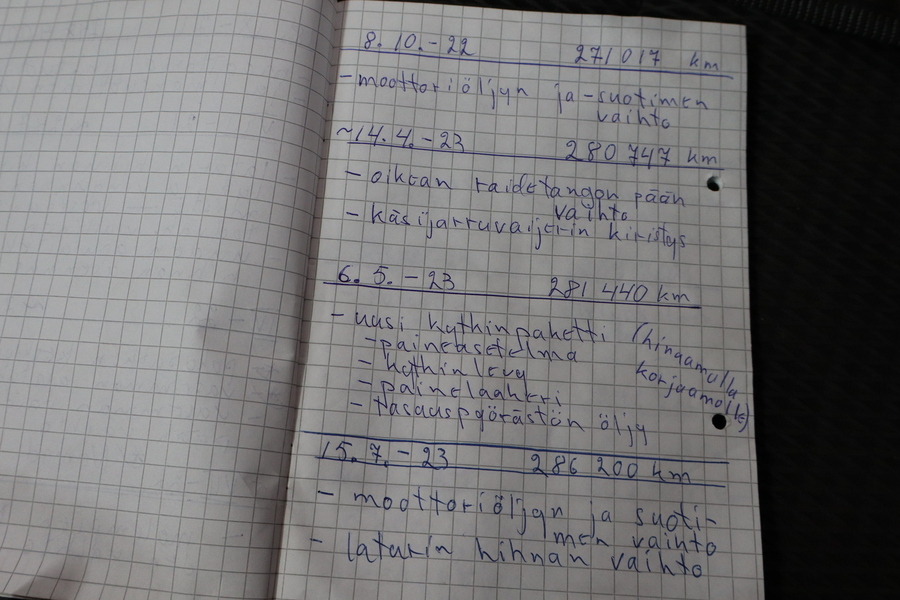 8. 10. -22 271 017 km
- moottoriöljyn ja -suotimen
vaihto
~14. 4. -23 280 747 km
- oikean raidetangon pään
vaihto
- käsijarruvaijerin kiristys
6. 5. -23 281 440 km
- uusi kytkinpaketti (hinaamolla
korjaamolle)
- paineasetelma
- kytkinlevy
- painelaakeri
- tasauspyörästön öljy
15. 7. -23 286 200 km
- moottoriöljyn ja suoti-
men vaihto
- laturin hihnan vaihto